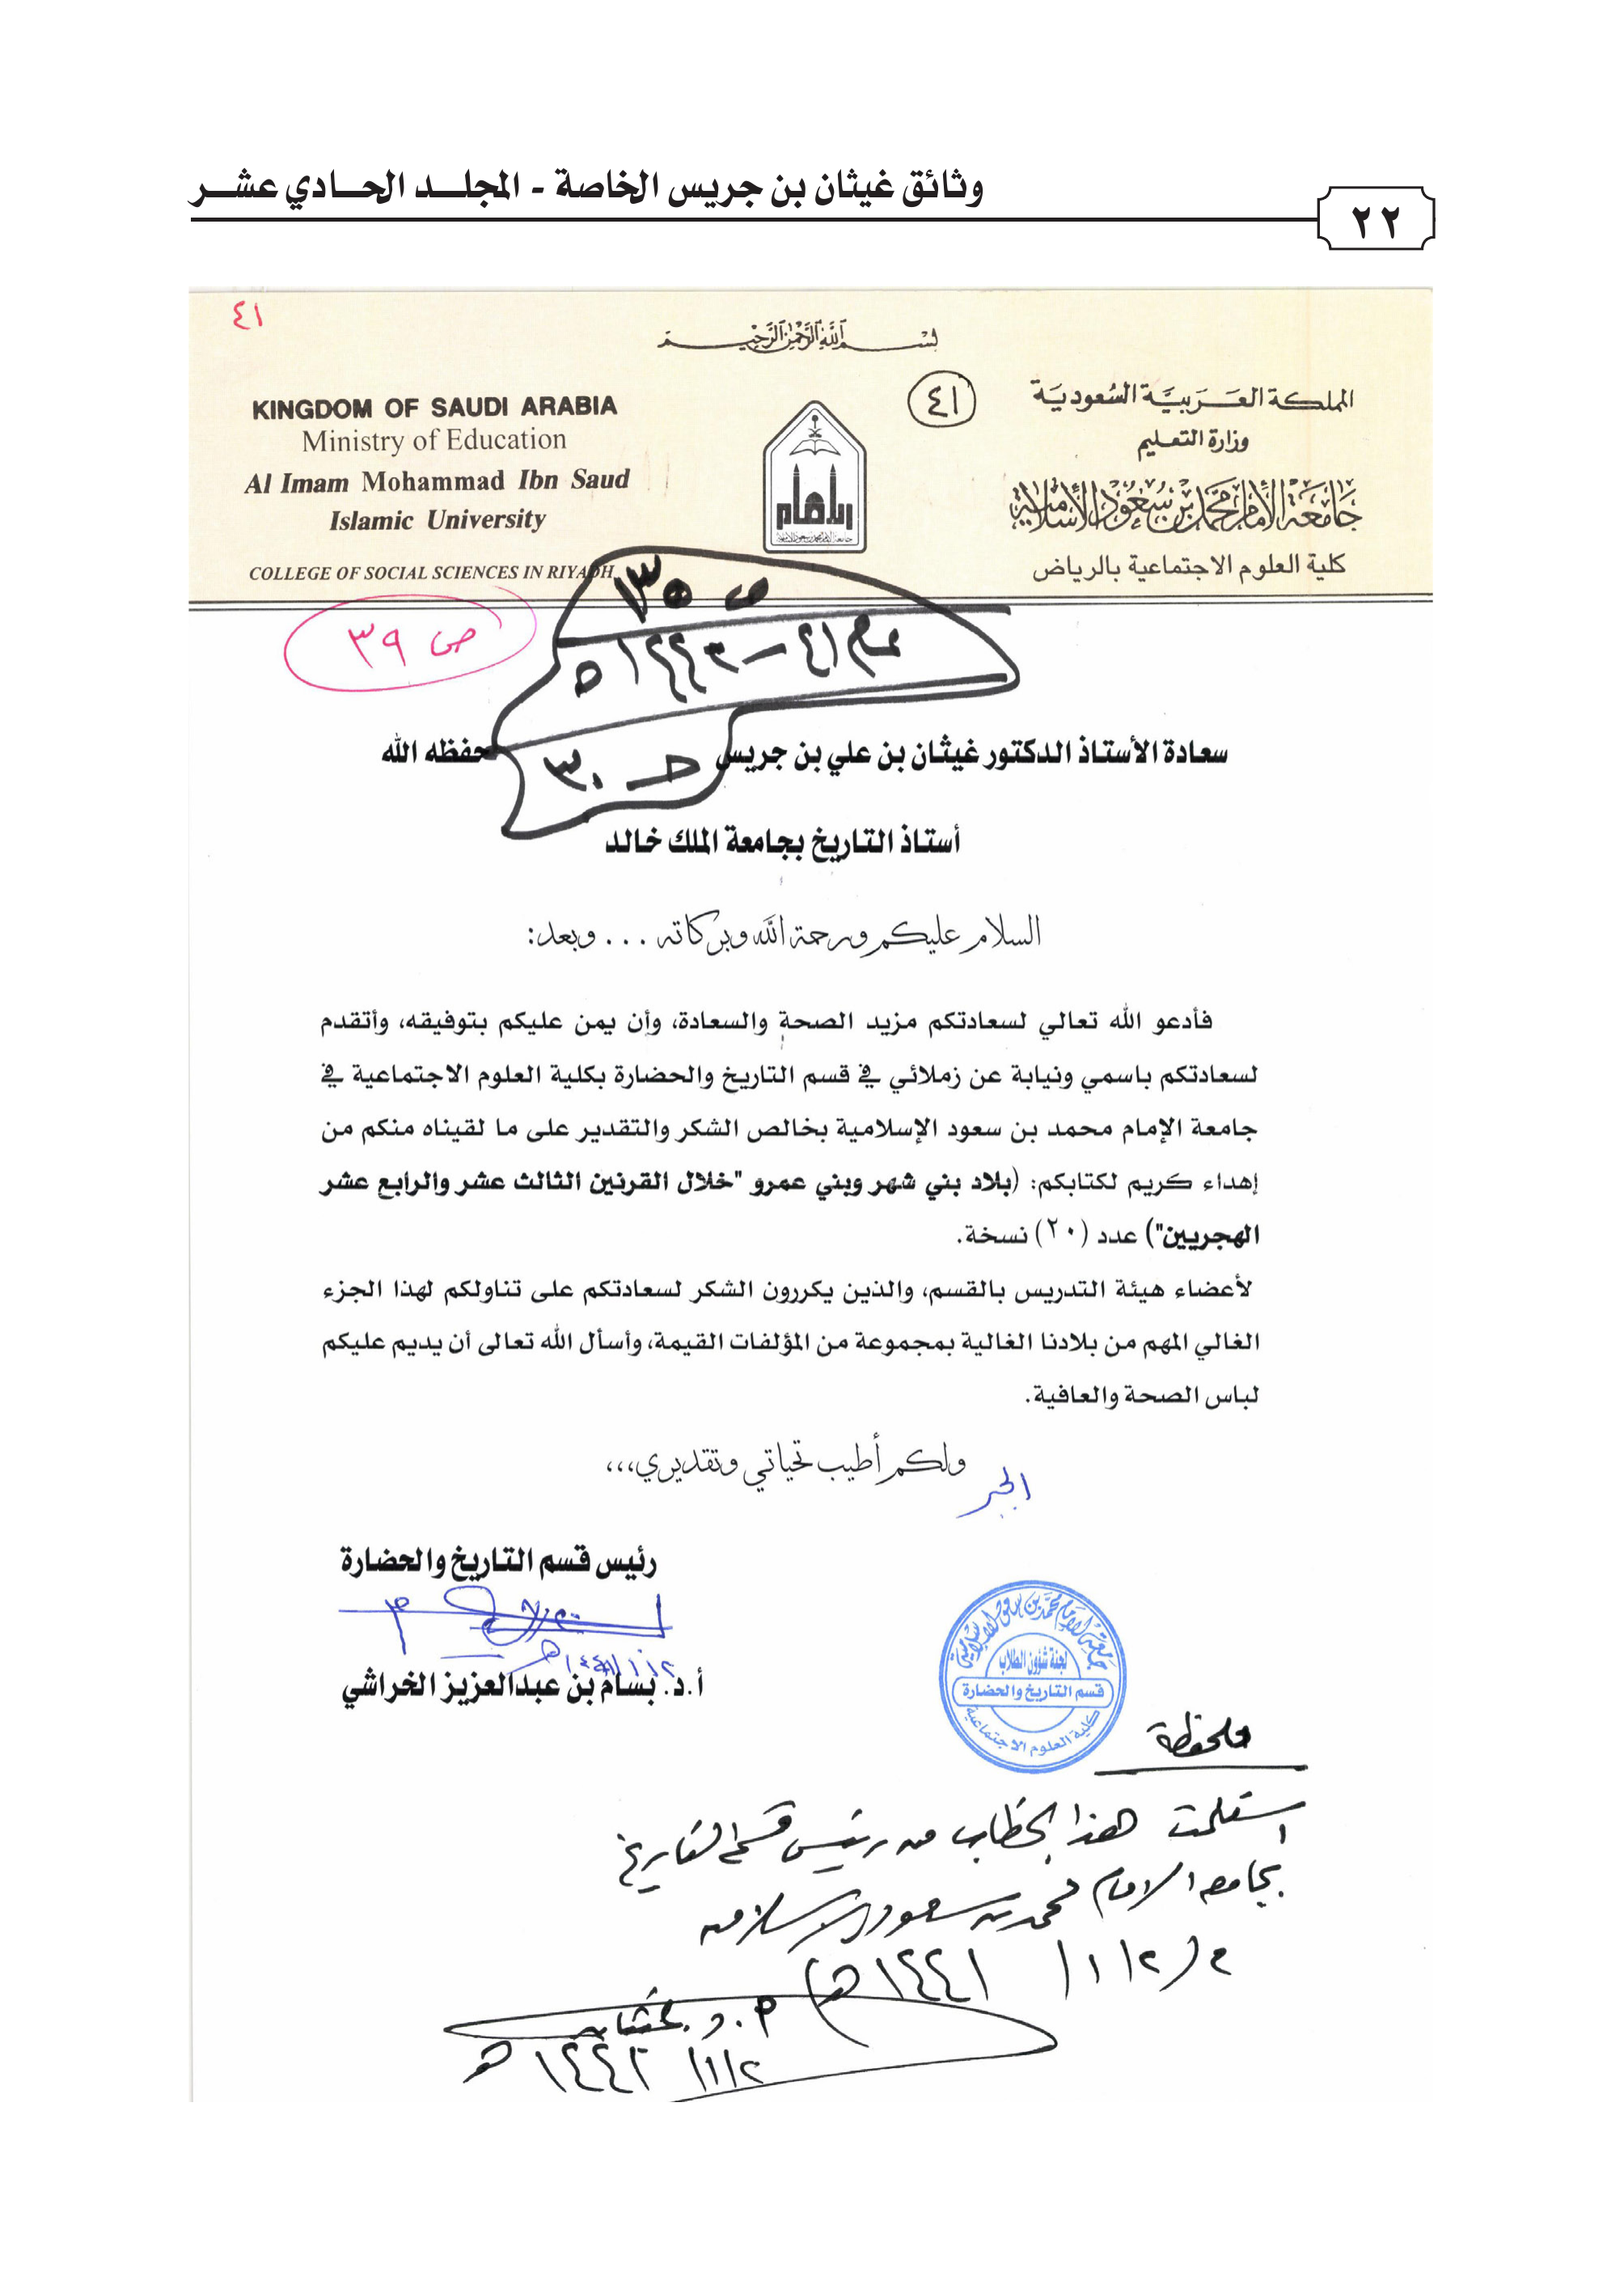 وثائق غيثان بن جريس الخاصة - المجلد الحادي عشر
٢٢
٤١
بسم الله الرحمن الرحيم
٤١
المملكة العربية السعودية
وزارة التعليم
جامعة الإمام محمد بن سعود الإسلامية
كلية العلوم الاجتماعية بالرياض
KINGDOM OF SAUDI ARABIA
Ministry of Education
Al Imam Mohammad Ibn Saud
Islamic University
COLLEGE OF SOCIAL SCIENCES IN RIYADH
ص ٣٩
سعادة الأستاذ الدكتور غيثان بن علي بن جريس حفظه الله
أستاذ التاريخ بجامعة الملك خالد
السلام عليكم ورحمة الله وبركاته ... وبعد:
فأدعو الله تعالي لسعادتكم مزيد الصحة والسعادة، وأن يمن عليكم بتوفيقه، وأتقدم
لسعادتكم باسمي ونيابة عن زملائي في قسم التاريخ والحضارة بكلية العلوم الاجتماعية في
جامعة الإمام محمد بن سعود الإسلامية بخالص الشكر والتقدير على ما لقيناه منكم من
إهداء كريم لكتابكم: (بلاد بني شهر وبني عمرو "خلال القرنين الثالث عشر والرابع عشر
الهجريين") عدد (٢٠) نسخة.
لأعضاء هيئة التدريس بالقسم، والذين يكررون الشكر لسعادتكم على تناولكم لهذا الجزء
الغالي المهم من بلادنا الغالية بمجموعة من المؤلفات القيمة، وأسأل الله تعالى أن يديم عليكم
لباس الصحة والعافية.
ولكم أطيب تحياتي وتقديري،،،
رئيس قسم التاريخ والحضارة
أ.د. بسام بن عبدالعزيز الخراشي
جامعة الإمام محمد بن سعود الإسلامية
لجنة شؤون الطلاب
قسم التاريخ والحضارة
كلية العلوم الاجتماعية
ملحوظة
استلمت هذا الخطاب من رئيس قسم التاريخ
بجامعة الامام محمد بن سعود الاسلامية